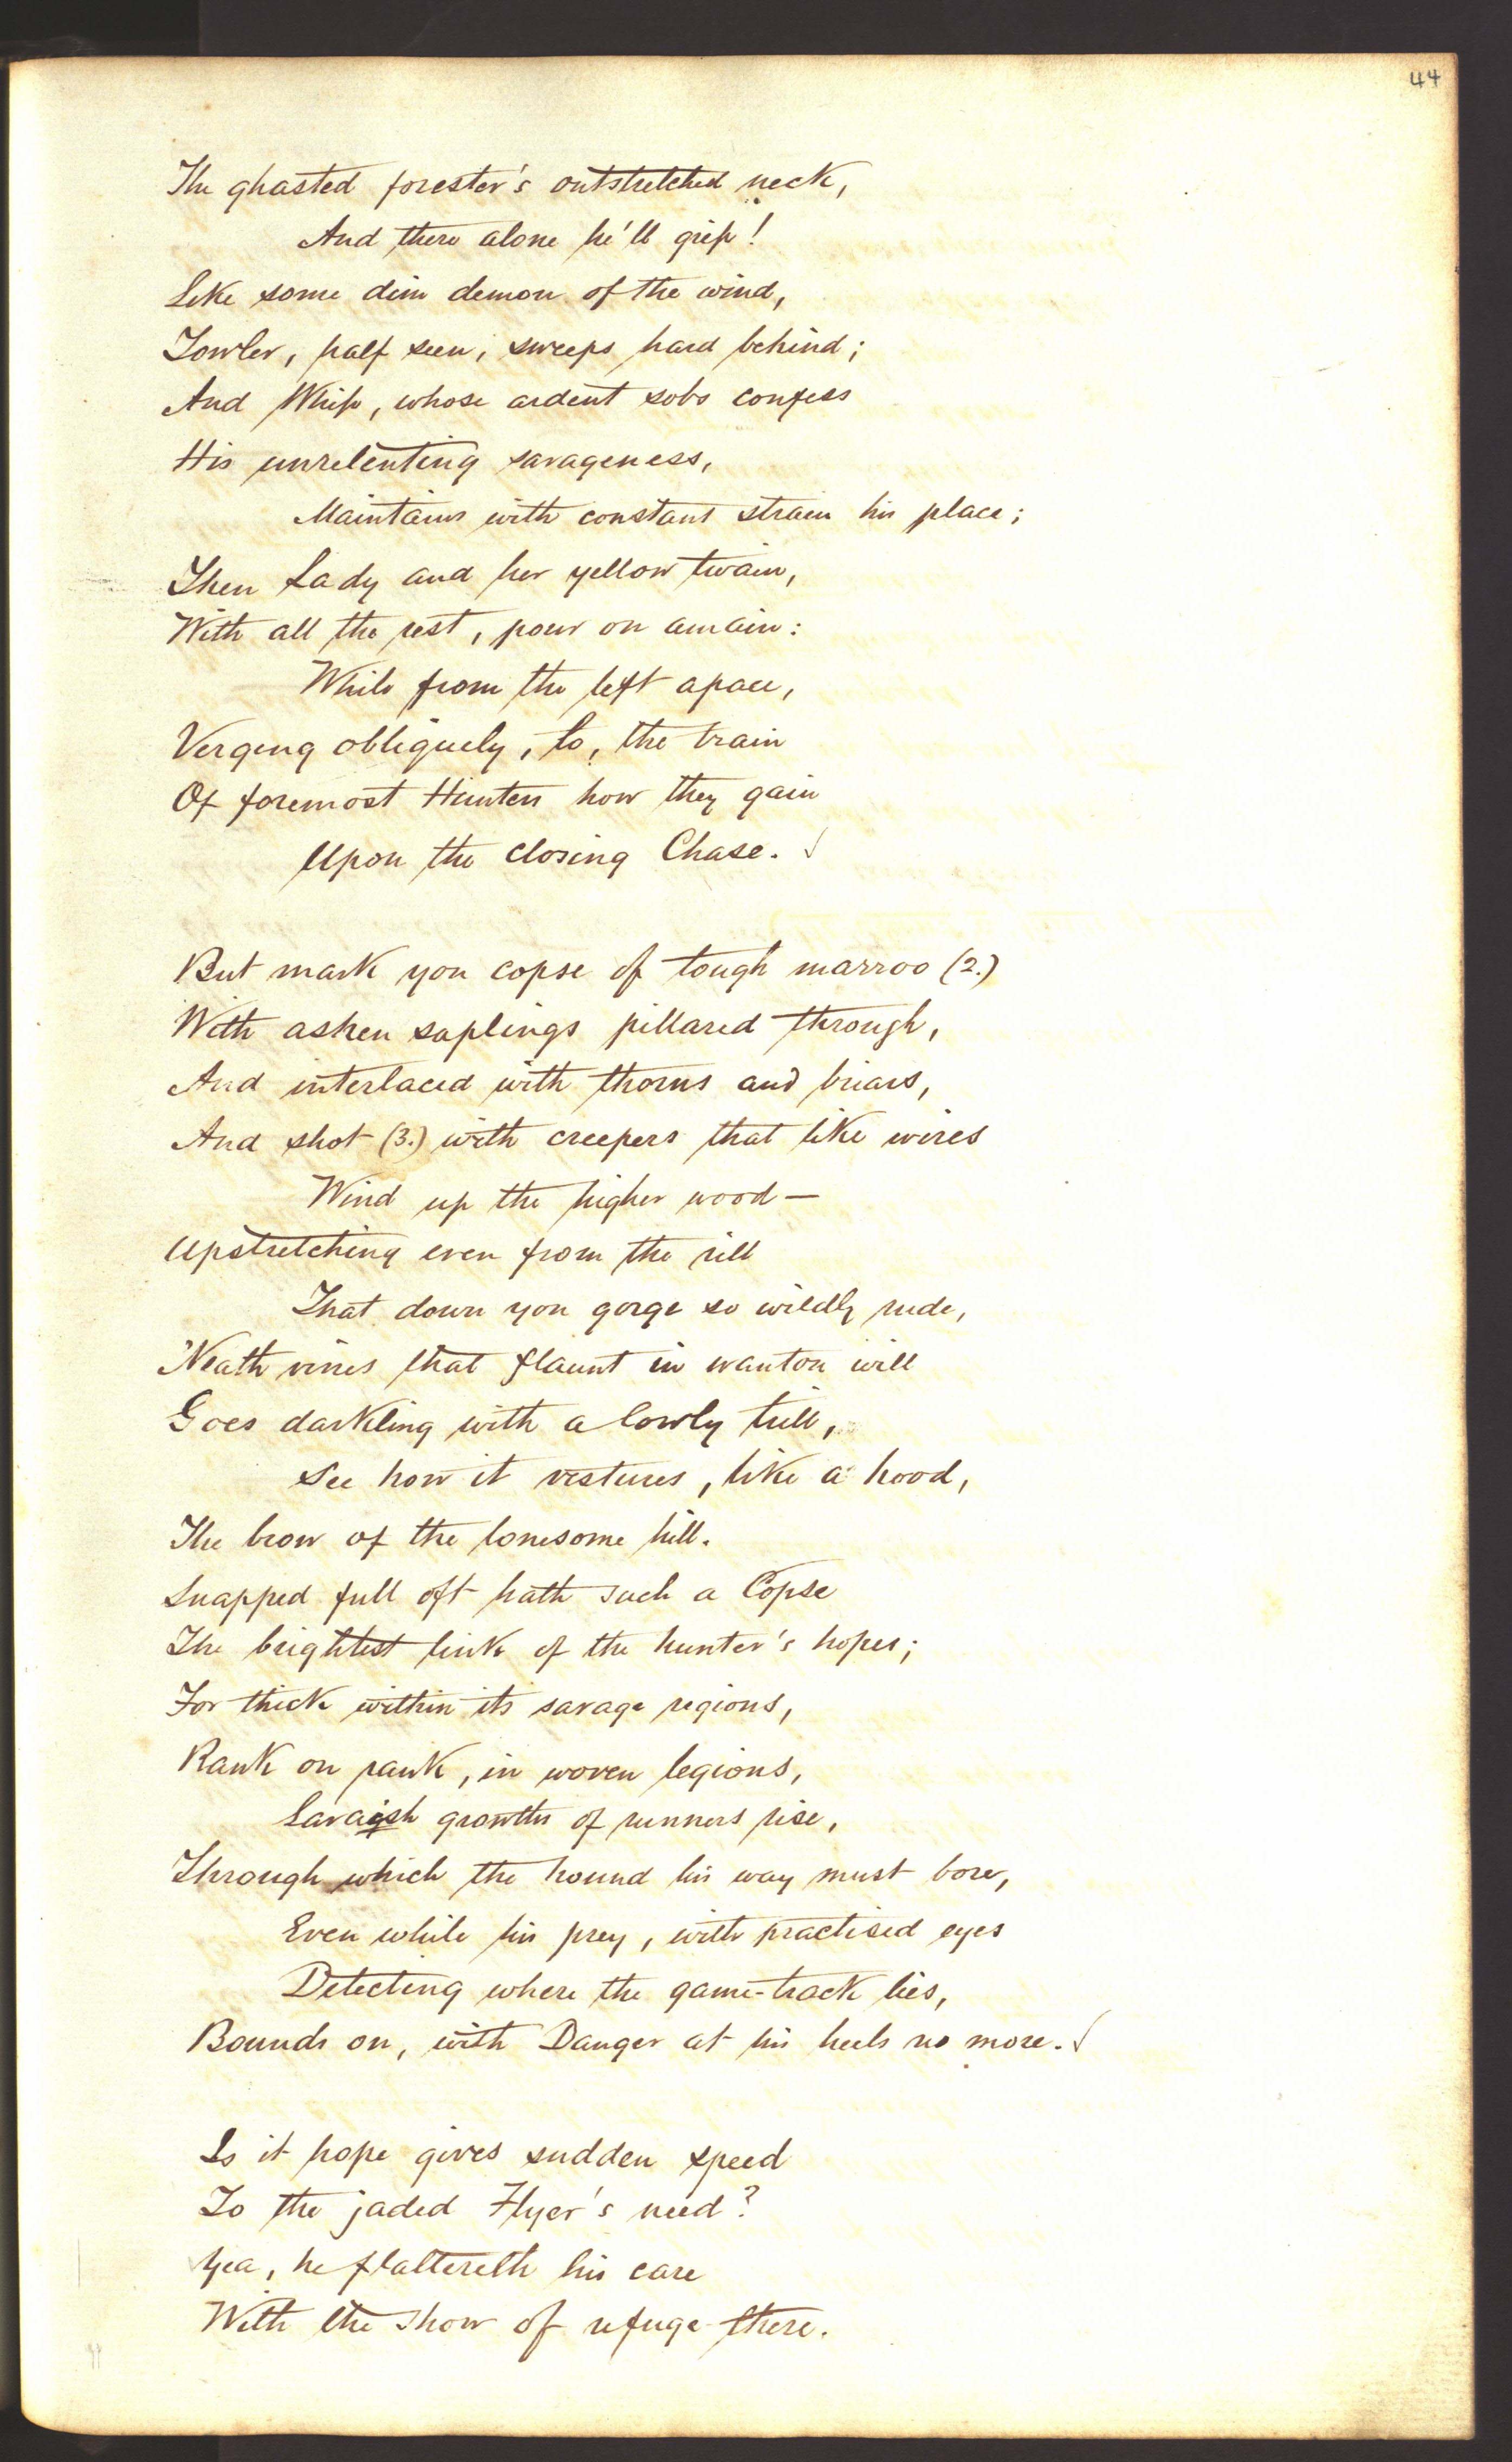 44
The ghasted forester's outstretched neck,
And there alone he'll grip!
Like some dim demon of the wind,
Towler, half seen, sweeps hard behind;
And Whip, whose ardent sobs confess
His unrelenting savageness,
Maintains with constant strain his place;
Then Lady and her yellow twain,
With all the rest, pour on amain:
While from the left apace,
Verging obliquely, lo, the train
Of foremost Hunters how they gain
Upon the closing Chase.
But mark yon copse of tough marroo (2.)
With ashen saplings pillared through,
And interlaced with thorns and briars,
And shot (3.) with creepers that like wires
Wind up the higher wood—
Upstretching even from the rill
That down yon gorge so wildly rude,
'Neath vines that flaunt in wanton will
Goes darkling with a lowly trill,
See how it vestures, like a hood,
The brow of the lonesome hill.
Snapped full oft hath such a Copse
The brightest link of the hunter's hopes;
For thick within its savage regions,
Rank on rank, in woven legions,
growths of runners rise,
Through which the hound his way must bore,
Even while his prey, with practised eyes
Detecting where the game-track lies,
Bounds on, with Danger at his heels no more.
Is it hope gives sudden speed
To the jaded Flyer's need?
Yea, he flattereth his care
With the show of refuge there.